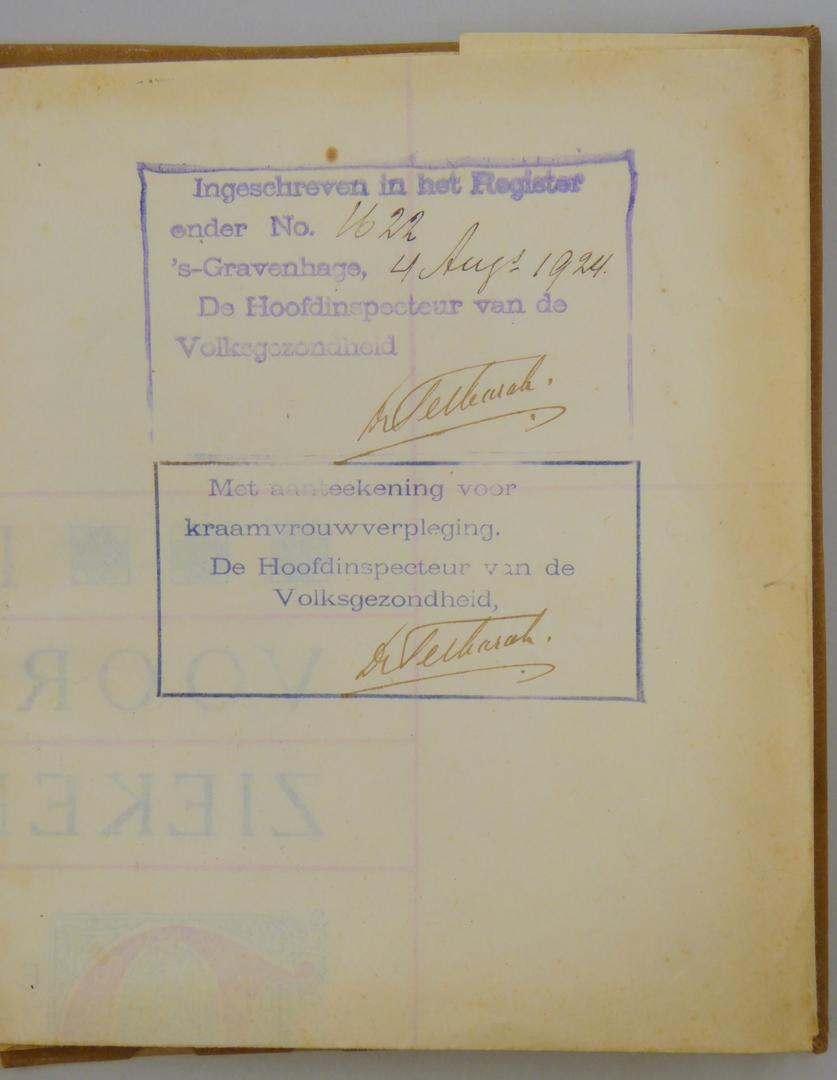 Ingeschreven in het Register
onder No. 1622
's-Gravenhage, 4 Augs 1924.
De Hoofdinspecteur van de
Volksgezondheid
Met aanteekening voor
kraamvrouwverpleging.
De Hoofdinspecteur van de
Volksgezondheid,
VOOR
ZIEKE